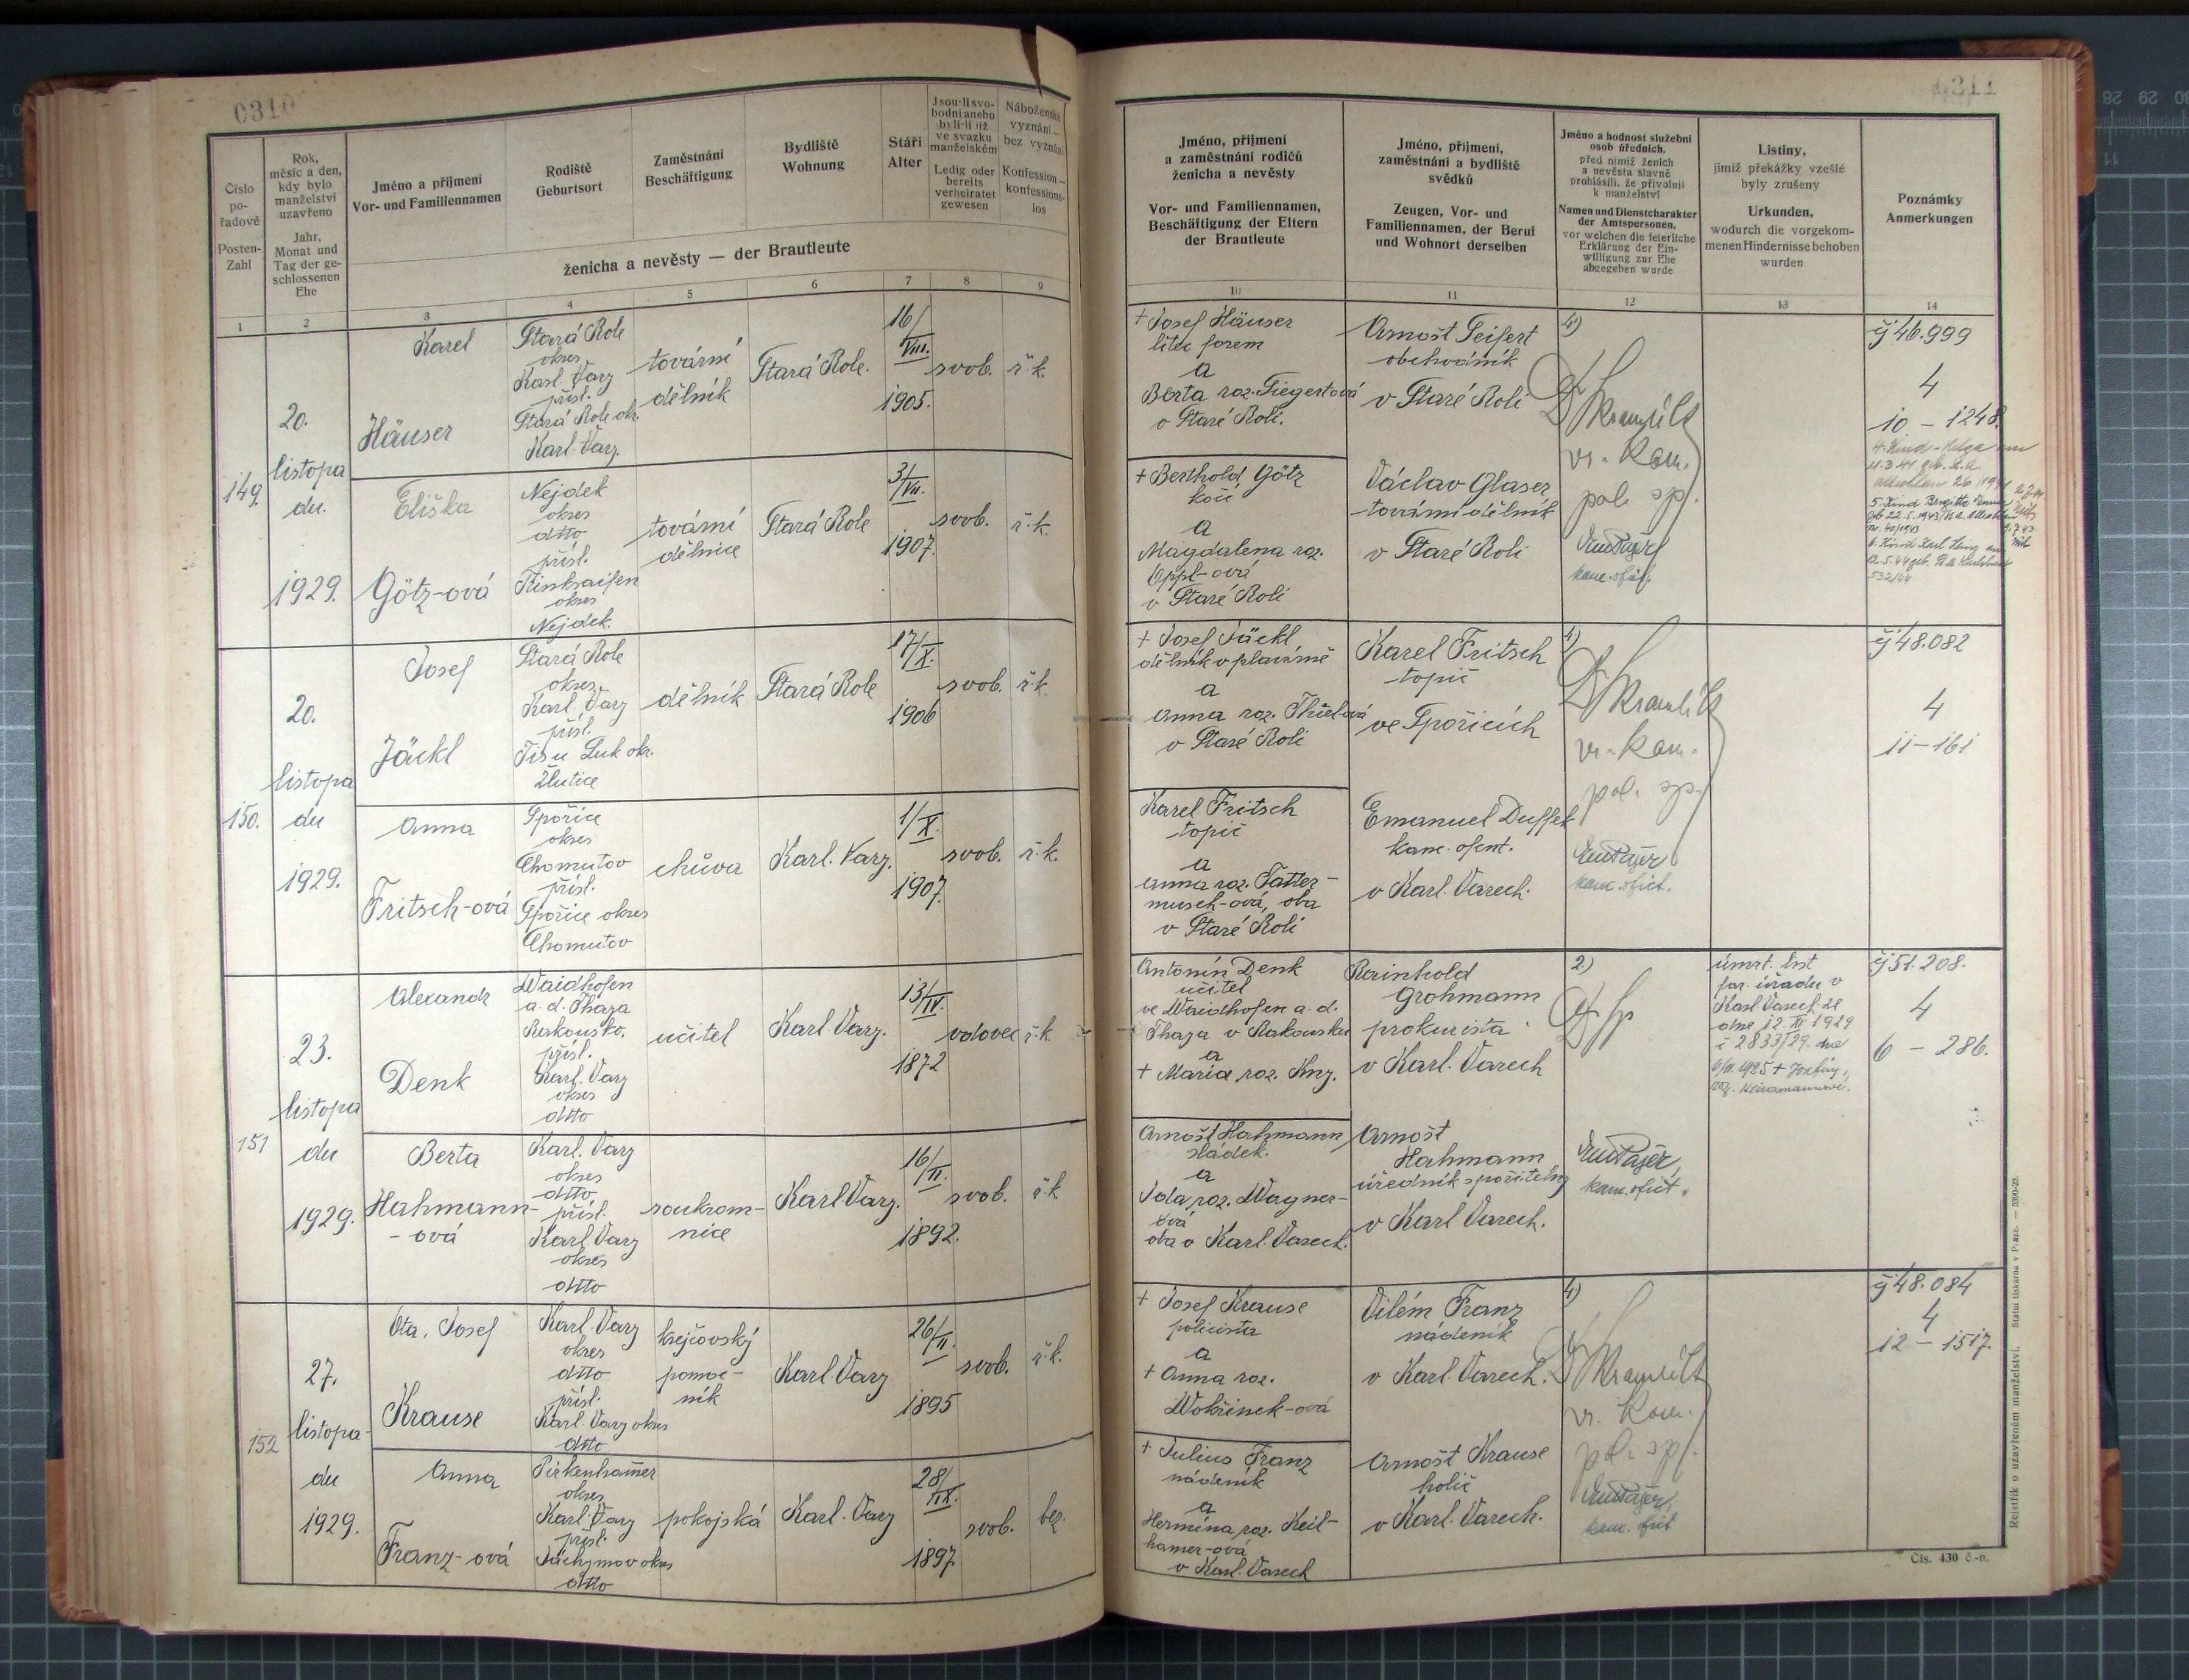 0310
Číslo
po-
řadové
Posten-
Zahl
Rok,
měsíc a den,
kdy bylo
manželství
uzavřeno
Jahr,
Monat und
Tag der ge-
schlossenen
Ehe
Jméno a příjmení
Vor- und Familiennamen
Rodiště
Geburtsort
Zaměstnání
Beschäftigung
Bydliště
Wohnung
Stáří
Alter
Jsou-li svo-
bodni aneb
byli-li již
ve svazku
manželském
Ledig oder
bereits
verheiratet
gewesen
Náboženské
vyznání —
bez vyznání
Konfession —
konfessions-
los
ženicha a nevěsty — der Brautleute
1
2
3
4
5
6
7
8
9
149.
20.
listopa
du.
1929.
Karel
Häuser
Stará Role
okres
Karl. Vary
přísl.
Stará Role okr.
Karl. Vary.
tovární
dělník
Stará Role.
16/
VIII.
1905.
svob.
ř. k.
Eliška
Götz-ová
Nejdek
okres
dtto
přísl.
okres
Nejdek.
tovární
dělnice
Stará Role
3/
VII.
1907.
svob.
ř. k.
150.
20.
listopa
du
1929.
Josef
Jäckl
Stará Role
okres
Karl. Vary
přísl.
Tis u Luk okr.
Žlutice
dělník
Stará Role
17/
X.
1906
svob.
ř. k.
Anna
Fritsch-ová
Spořice
okres
Chomutov
přísl.
Spořice okres
Chomutov
chůva
Karl. Vary.
1/
X.
1907.
svob.
ř. k.
151
23.
listopa
du
1929.
Alexandr
Denk
Waidhofen
a. d. Thaya
Rakousko.
přísl.
Karl. Vary
okres
dtto
učitel
Karl. Vary.
13/
IV.
1872
vdovec
ř. k.
Berta
Hahmann-
-ová
Karl. Vary
okres
dtto
přísl.
Karl. Vary
okres
dtto
soukrom-
nice
Karl. Vary.
16/
II.
1892.
svob.
ř. k
152
27.
listopa-
du
1929.
Ota, Josef
Krause
Karl. Vary
okres
dtto
přísl.
Karl. Vary okres
dtto
krejčovský
pomoc-
ník
Karl. Vary
26/
II.
1895
svob.
ř. k.
Anna
Franz-ová
Pirkenhamer
okres
Karl. Vary
přísl.
Jáchymov okres
dtto
pokojská
Karl. Vary
28/
IX.
1897.
svob.
bez.
Jméno, příjmení
a zaměstnání rodičů
ženicha a nevěsty
Vor- und Familiennamen,
Beschäftigung der Eltern
der Brautleute
Jméno, příjmení,
zaměstnání a bydliště
svědků
Zeugen, Vor- und
Familiennamen, der Beruf
und Wohnort derselben
Jméno a hodnost služební
osob úředních,
před nimiž ženich
a nevěsta slavně
prohlásili, že přivolují
k manželství
Namen und Dienstcharakter
der Amtspersonen,
vor welchen die feierliche
Erklärung der Ein-
willigung zur Ehe
abgegeben wurde
Listiny,
jimiž překážky vzešlé
byly zrušeny
Urkunden,
wodurch die vorgekom-
menen Hindernisse behoben
wurden
Poznámky
Anmerkungen
10
11
12
13
14
+ Josef Häuser
litec forem
a
Berta roz. Siegertová
v Staré Roli.
Arnošt Seifert
obchodník
v Staré Roli
vr. kom.
pol. spr.
čj 46.999
4
10 - 1248.
+ Berthold Götz
kočí
a
Magdalena roz.
Öppl-ová
v Staré Roli
Václav Glaser
tovární dělník
v Staré Roli
+ Josef Jäckl
dělník v plavírně
a
Anna roz. Thielová
v Staré Roli
Karel Fritsch
topič
ve Spořicích
vr. kom.
pol. spr.
čj 48.082
4
11 - 161
Karel Fritsch
topič
a
Anna roz. Tatter-
musch-ová, oba
v Staré Roli
Emanuel Duffek
kanc. oficnt.
v Karl. Varech.
kanc. ofict.
Antonín Denk
učitel
ve Waidhofen a. d.
Thaya v Rakousku
a
+ Maria roz. Kny.
Rainhold
Grohmann
prokurista
v Karl. Varech
2.)
úmrt. list
far. úřadu v
Karl. Varech ze
dne 12. XI 1929
č 2833/29. dne
čj 51.208.
4
6 - 286.
Arnošt Hahmann
sládek.
a
Ida roz. Wagner-
ová
oba v Karl. Varech.
Arnošt
Hahmann
úředník spořitelny
v Karl. Varech.
kanc. ofict.
+ Josef Krause
policista
a
+ Anna roz.
Wokřinek-ová
Vilém Franz
nádeník
v Karl. Varech.
vr. kom.
pol. spr.
čj 48.084
4
12 - 1517.
+ Julius Franz
nádeník
a
Hermina roz. Keil-
hamer-ová
v Karl. Varech
Arnošt Krause
holič
v Karl. Varech.
Rejstřík o uzavřeném manželství. Státní tiskárna v Praze.
Čís. 430 č.-n.